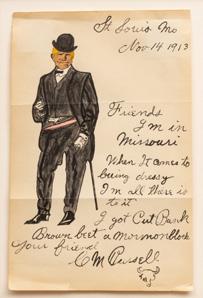 St Louis Mo
Nov 14 1913
Friends
I'm in
Missouri
When It comes to
being dressy
I'm all there is
to it
I got Pat Bank
Brown beet a Mormon block
Your friend
C M Russell